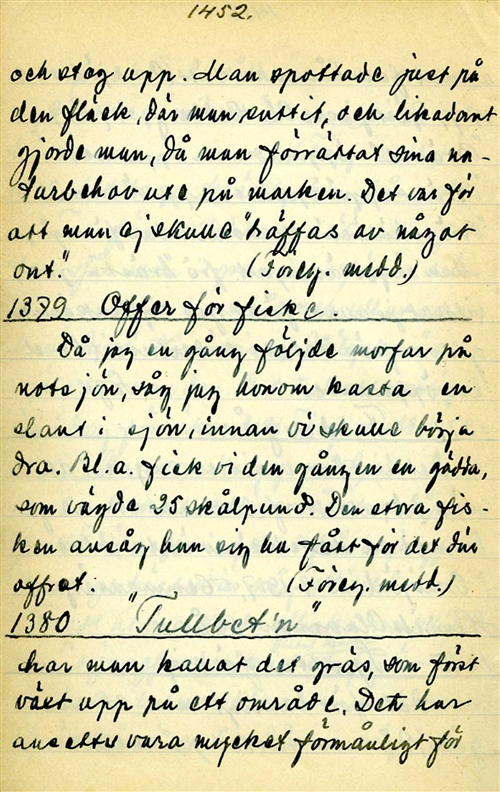 1452.
och steg upp. Man spottade just på
den fläck, där man suttit, och likadant
gjorde man, då man förrättat sina na-
turbehov ute på marken. Det var för
att man ej skulle "träffas av något
ont." (Föreg. medd.)
1379 Offer för fiske.
Då jag en gång följde morfar på
notsjön, såg jag honom kasta en
slant i sjön, innan vi skulle börja
dra. Bl.a. fick vi den gången en gädda,
som vägde 25 skålpund. Den stora fis-
ken ansåg han sig ha fått för det där
offret. (Föreg. medd.)
1380 "Tullbet'n"
har man kallat det gräs, som först
växt upp på ett område. Dett har
ansetts vara mycket förmånligt för